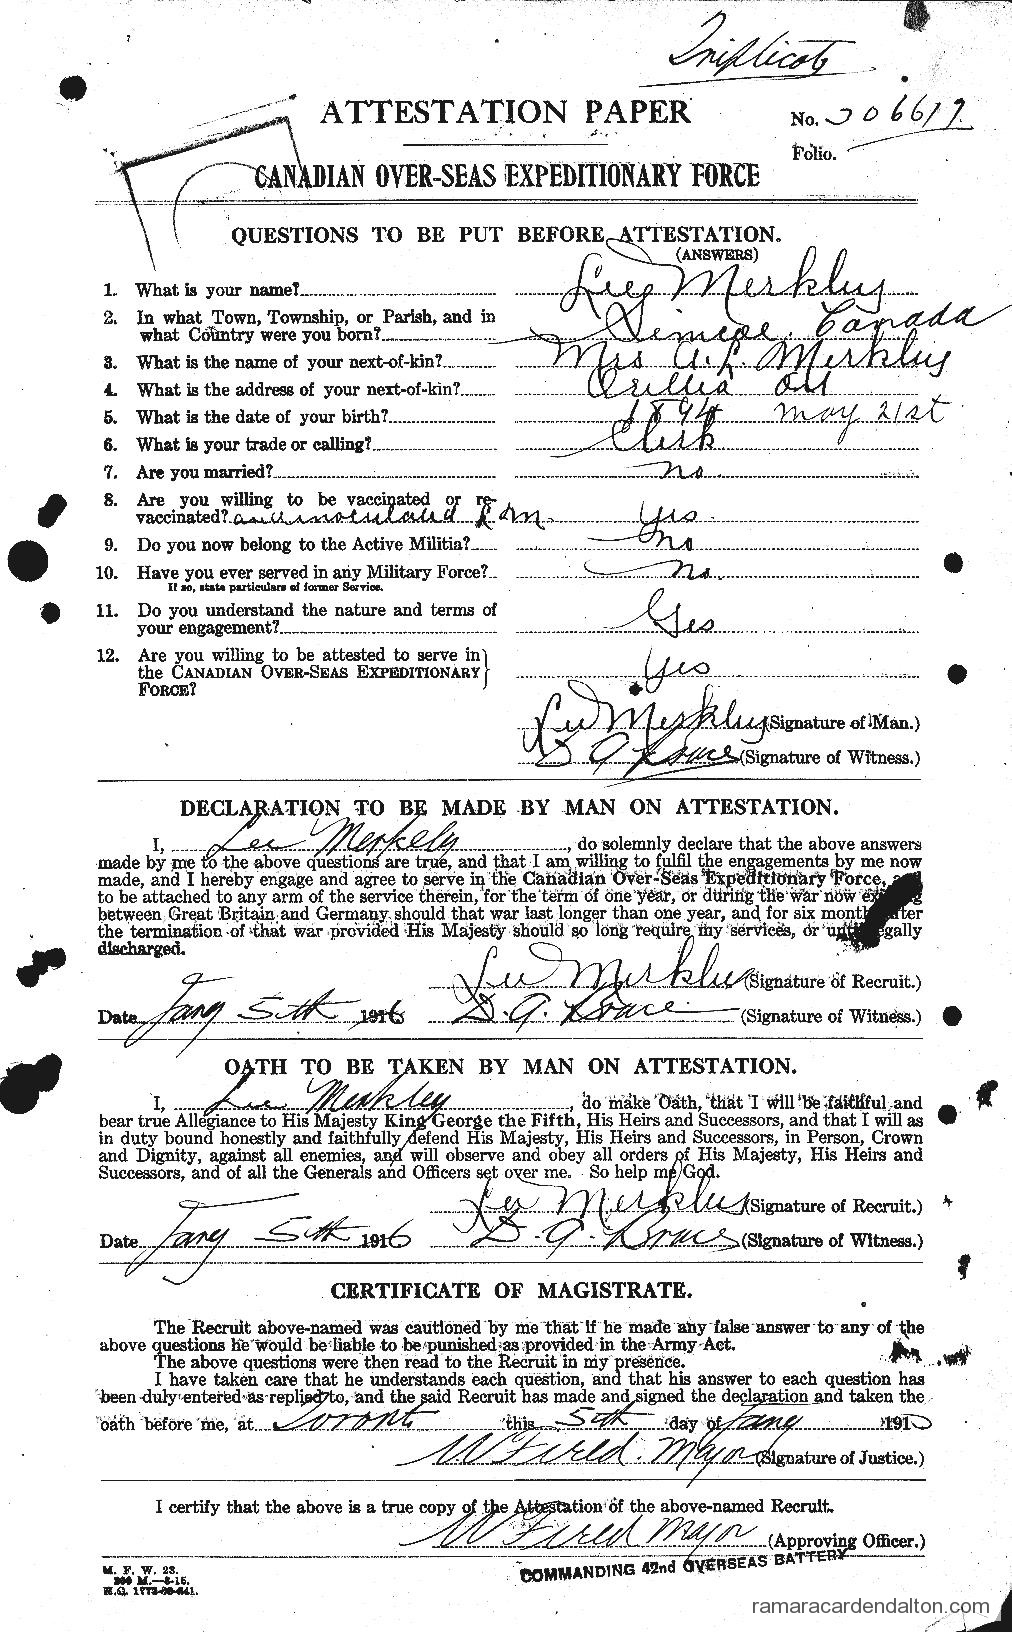 Triplicate
ATTESTATION PAPER
No. 306619
Folio.
CANADIAN OVER-SEAS EXPEDITIONARY FORCE
QUESTIONS TO BE PUT BEFORE ATTESTATION.
(ANSWERS)
1. What is your name? Lee Merkley
2. In what Town, Township, or Parish, and in
what Country were you born? Simcoe. Canada
3. What is the name of your next-of-kin? Mrs A. L. Merkley
4. What is the address of your next-of-kin? Orillia Ont
5. What is the date of your birth? 1894 May 21st
6. What is your trade or calling? Clerk
7. Are you married? no
8. Are you willing to be vaccinated or re-
vaccinated? and inoculated Yes
9. Do you now belong to the Active Militia? no
10. Have you ever served in any Military Force? no.
If so, state particulars of former Service.
11. Do you understand the nature and terms of
your engagement? Yes
12. Are you willing to be attested to serve in
the CANADIAN OVER-SEAS EXPEDITIONARY
FORCE? Yes
Lee Merkley (Signature of Man.)
D A Bruce (Signature of Witness.)
DECLARATION TO BE MADE BY MAN ON ATTESTATION.
I, Lee Merkely, do solemnly declare that the above answers
made by me to the above questions are true, and that I am willing to fulfil the engagements by me now
made, and I hereby engage and agree to serve in the Canadian Over-Seas Expeditionary Force, and
to be attached to any arm of the service therein, for the term of one year, or during the war now existing
between Great Britain and Germany should that war last longer than one year, and for six months after
the termination of that war provided His Majesty should so long require my services, or until legally
discharged.
Lee Merkley (Signature of Recruit.)
Date Jany 5th 1916 D. A. Bruce (Signature of Witness.)
OATH TO BE TAKEN BY MAN ON ATTESTATION.
I, Lee Merkley, do make Oath, that I will be faithful and
bear true Allegiance to His Majesty King George the Fifth, His Heirs and Successors, and that I will as
in duty bound honestly and faithfully defend His Majesty, His Heirs and Successors, in Person, Crown
and Dignity, against all enemies, and will observe and obey all orders of His Majesty, His Heirs and
Successors, and of all the Generals and Officers set over me. So help me God.
Lee Merkley (Signature of Recruit.)
Date Jany 5th 1916 D. A. Bruce (Signature of Witness.)
CERTIFICATE OF MAGISTRATE.
The Recruit above-named was cautioned by me that if he made any false answer to any of the
above questions he would be liable to be punished as provided in the Army Act.
The above questions were then read to the Recruit in my presence.
I have taken care that he understands each question, and that his answer to each question has
been duly entered as replied to, and the said Recruit has made and signed the declaration and taken the
oath before me, at Toronto this 5th day of Jany 191
Major (Signature of Justice.)
I certify that the above is a true copy of the Attestation of the above-named Recruit.
Major (Approving Officer.)
COMMANDING 42nd OVERSEAS BATTERY
M. F. W. 23.
200 M.—8-15.
H.Q. 1772-39-841.
ramaracardendalton.com